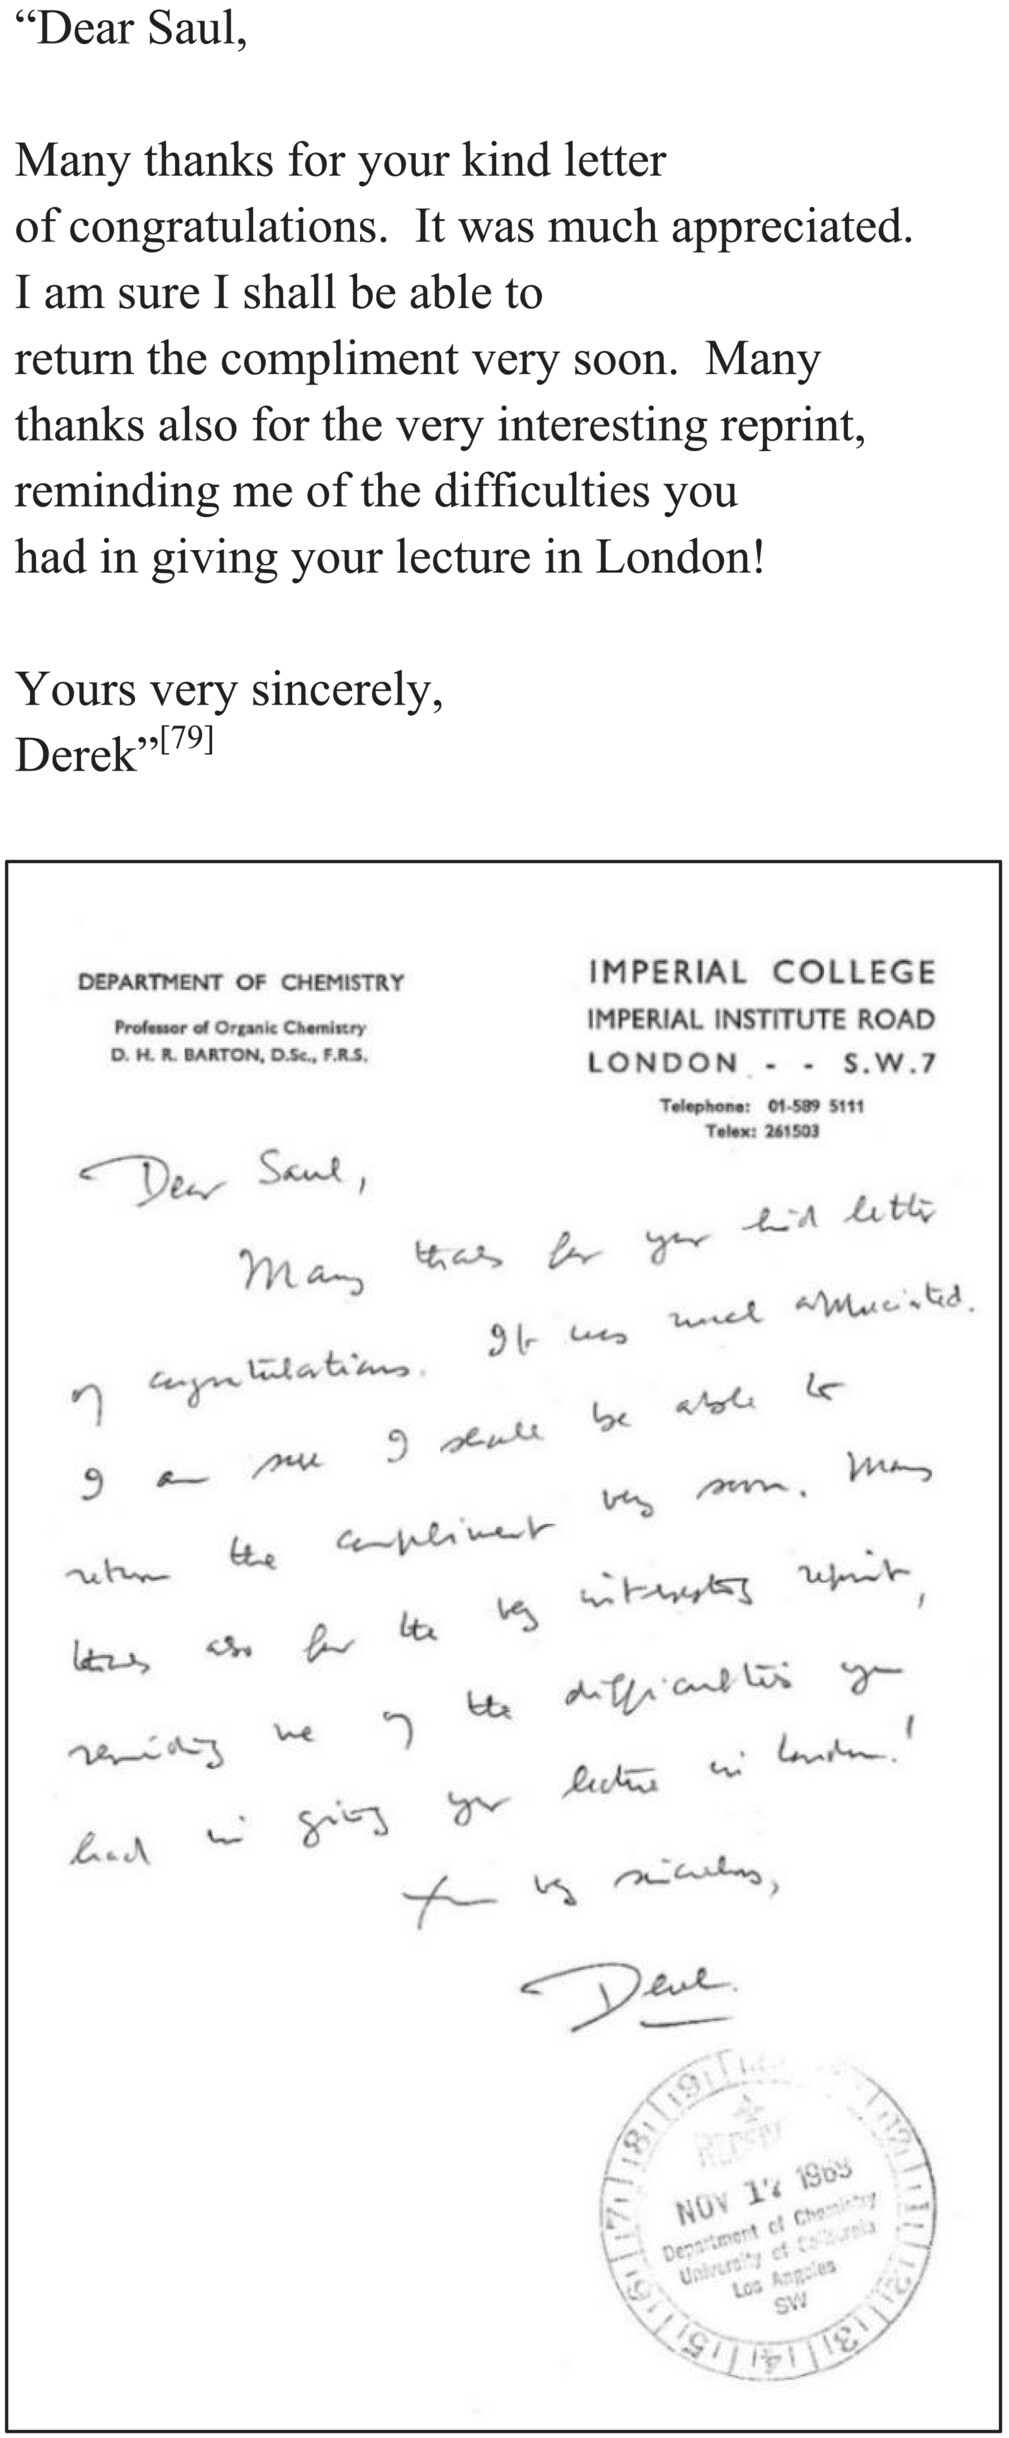 “Dear Saul,
Many thanks for your kind letter
of congratulations. It was much appreciated.
I am sure I shall be able to
return the compliment very soon. Many
thanks also for the very interesting reprint,
reminding me of the difficulties you
had in giving your lecture in London!
Yours very sincerely,
Derek”[79]
DEPARTMENT OF CHEMISTRY
Professor of Organic Chemistry
D. H. R. BARTON, D.Sc., F.R.S.
IMPERIAL COLLEGE
IMPERIAL INSTITUTE ROAD
LONDON - - S.W.7
Telephone: 01-589 5111
Telex: 261503
Dear Saul,
Many thanks for your kind letter
of congratulations. It was much appreciated.
I am sure I shall be able to
return the compliment very soon. Many
thanks also for the very interesting reprint,
reminding me of the difficulties you
had in giving your lecture in London!
Yours very sincerely,
Derek.
NOV 1969
Department of Chemistry
University of California
Los Angeles
SW